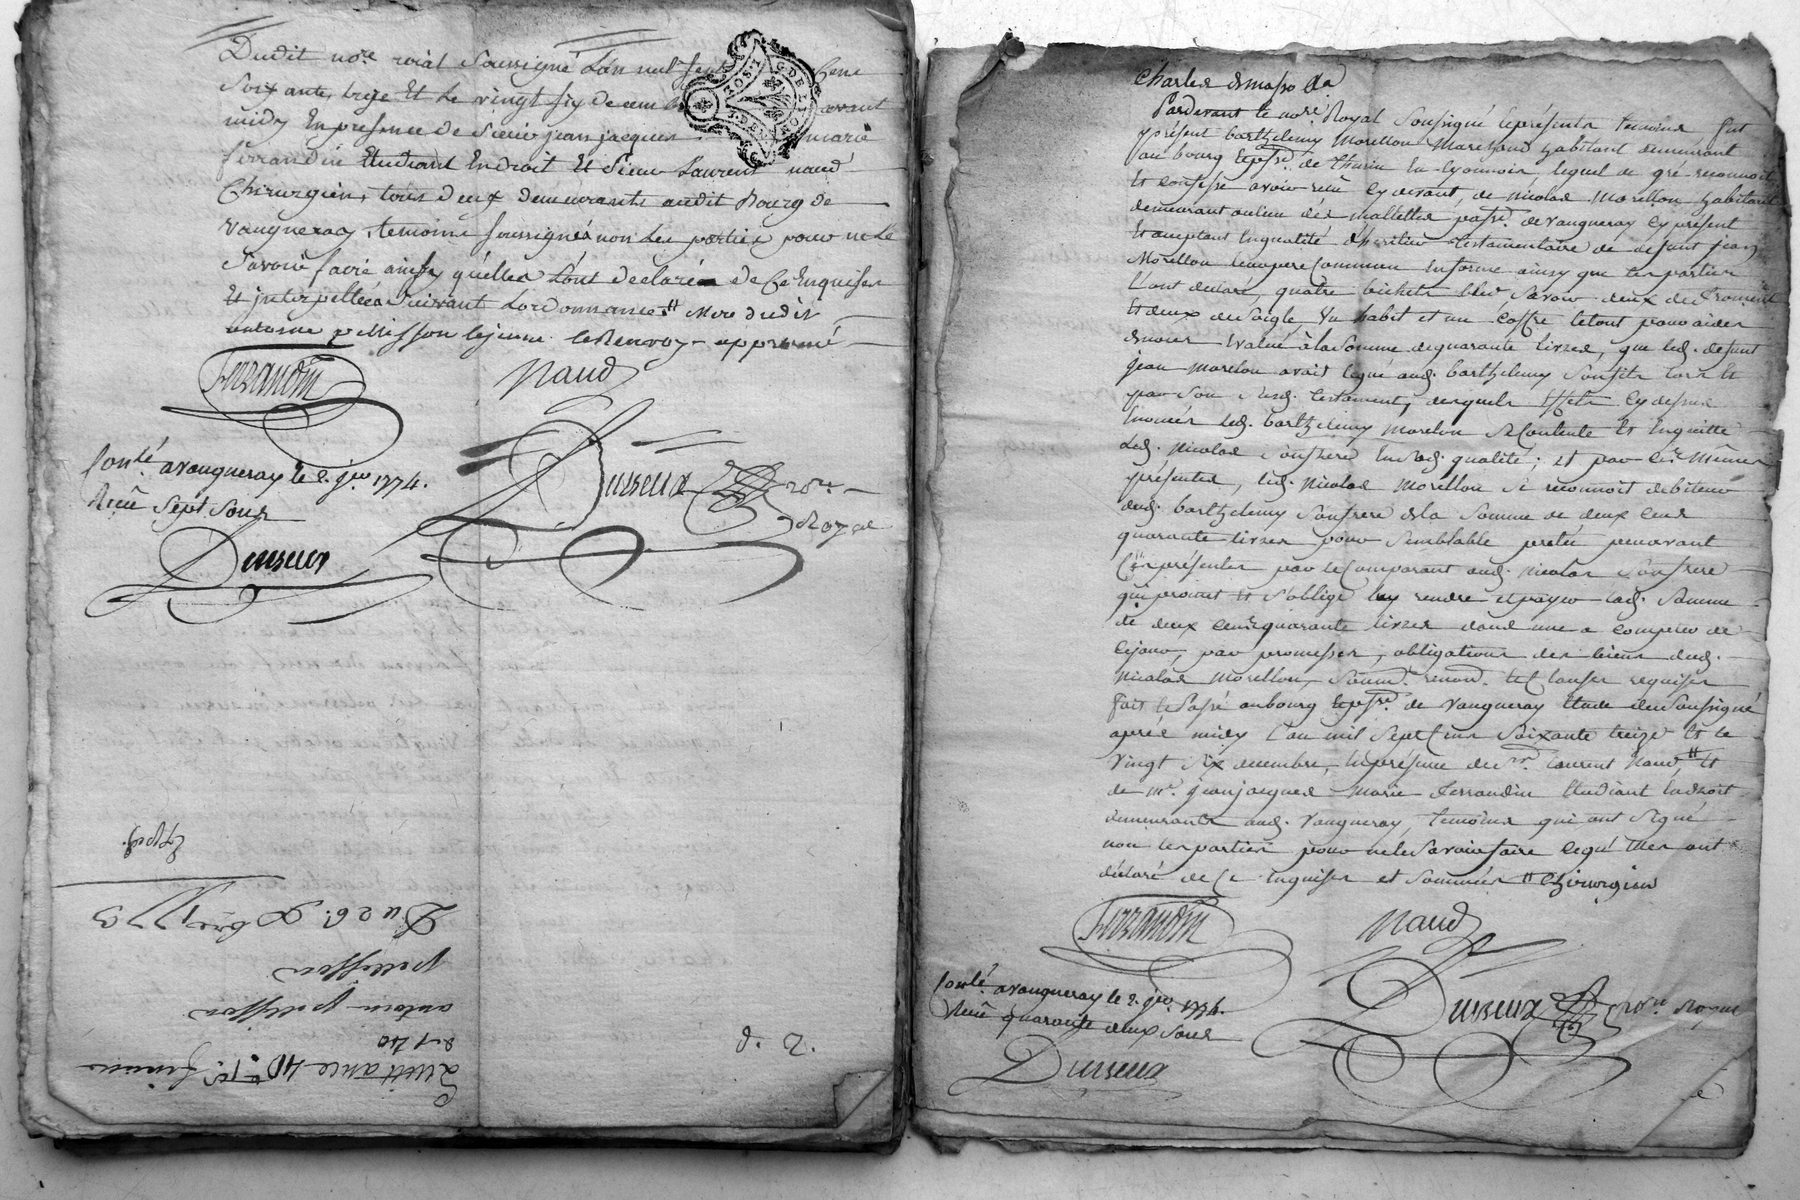 Dudit no.re roial Soussigné L'an mil sept Cens
Soixante treize Et Le vingt six decem avant
midy En presence de Sieur jean jacques marie
ferrandin Etudiant En droit Et Sieur Laurent naud
Chirurgien, tous deux demeurants audit Bourg de
Vaugneray, temoins soussignés non Les parties pour ne Le
Savoir faire ainsy qu'elles L'ont declaré de Ce Enquises
Et interpellées suivant Lordonnance # dudit
antoine pellisson le jeune le Renvoy approuvé
GDE LYON
ferrandin
naud
Conlé. a vaugneray le 2. jer 1774.
Reçu Sept Sous
Dusseux
Dusseux nore
Royal
Expéd.
Du 26. Xbre 1773
pellisson
antoine pellisson
Quittance 40
d. 2.
Charles
Pardevant le nore. Royal Soussigné & présents temoins fut
présent barthelemy Morellon Marchand habitant demeurant
au bourg & psse. de thurin En Lyonnois, lequel de gré reconnoit
Et Confesse avoir reçu Cy devant, de nicolas Morellon habitant
demeurant au lieu des mallettes passe. de Vaugneray Cy présent
Et acceptant En qualité d'heritier testamentaire de defunt jean
Morellon leur pere Commun En forme ainsy que les parties
L'ont declaré, quatre bichets bled, Savoir deux de froment
Et deux de Seigle Un habit et un Coffre le tout pour aider
Evalué à la Somme de quarante livres, que led. defunt
jean Morellon avait legué aud. barthelemy Son fils
par Son Susd. testament, desquels Effets Cy dessus
led. barthelemy Morellon Se Contente Et En quitte
Led. Nicolas Son frere En lad. qualité; et par Ces Mêmes
présentes, led. Nicolas Morellon Se reconnoit debiteur
dud. barthelemy Son frere de la Somme de deux Cens
quarante livres pour Semblable pretée peu avant
Ces présentes par le Comparant aud. Nicolas Son frere
qui promet Et S'oblige luy rendre et payer lad. Somme
de deux Cens quarante livres dans une a Compter de
Ce jour, par promesses, obligations des biens dud.
Nicolas Morellon, Soumd. renond. et Clauses requises
fait & Passé au bourg & psse. de Vaugneray Etude du Soussigné
après midy L'an mil Sept Cens Soixante treize Et le
vingt Six decembre, En présence de Sr. Laurent Naud # Et
de Mr. jean jacques Marie ferrandin Etudiant En droit
demeurants aud. Vaugneray, temoins qui ont Signé
non les parties pour ne le Savoir faire Ce qu'elles ont
déclaré de Ce Enquises et Sommées # Chirurgien
ferrandin
naud
Conlé. a vaugneray le 2. jer 1774.
Reçu quarante deux Sous
Dusseux
Dusseux nore Royal